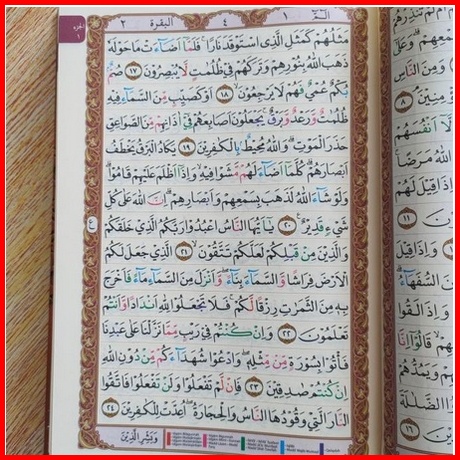 الٓمّٓ ١
٤
البقرة ٢
الجزء ١
مَثَلُهُمْ كَمَثَلِ الَّذِى اسْتَوْقَدَ نَارًا ۚ فَلَمَّآ اَضَاۤءَتْ مَا حَوْلَهٗ
ذَهَبَ اللّٰهُ بِنُوْرِهِمْ وَتَرَكَهُمْ فِيْ ظُلُمٰتٍ لَّا يُبْصِرُوْنَ ١٧ صُمٌّ ۢ
بُكْمٌ عُمْيٌ فَهُمْ لَا يَرْجِعُوْنَ ۙ ١٨ اَوْ كَصَيِّبٍ مِّنَ السَّمَاۤءِ فِيْهِ
ظُلُمٰتٌ وَّرَعْدٌ وَّبَرْقٌ ۚ يَجْعَلُوْنَ اَصَابِعَهُمْ فِيْٓ اٰذَانِهِمْ مِّنَ الصَّوَاعِقِ
حَذَرَ الْمَوْتِ ۗ وَاللّٰهُ مُحِيْطٌ ۢ بِالْكٰفِرِيْنَ ١٩ يَكَادُ الْبَرْقُ يَخْطَفُ
اَبْصَارَهُمْ ۗ كُلَّمَآ اَضَاۤءَ لَهُمْ مَّشَوْا فِيْهِ ۙ وَاِذَآ اَظْلَمَ عَلَيْهِمْ قَامُوْا ۗ
وَلَوْ شَاۤءَ اللّٰهُ لَذَهَبَ بِسَمْعِهِمْ وَاَبْصَارِهِمْ ۗ اِنَّ اللّٰهَ عَلٰى كُلِّ
شَيْءٍ قَدِيْرٌ ٢٠ يٰٓاَيُّهَا النَّاسُ اعْبُدُوْا رَبَّكُمُ الَّذِيْ خَلَقَكُمْ
وَالَّذِيْنَ مِنْ قَبْلِكُمْ لَعَلَّكُمْ تَتَّقُوْنَ ۙ ٢١ الَّذِيْ جَعَلَ لَكُمُ
الْاَرْضَ فِرَاشًا وَّالسَّمَاۤءَ بِنَاۤءً ۖ وَّاَنْزَلَ مِنَ السَّمَاۤءِ مَاۤءً فَاَخْرَجَ
بِهٖ مِنَ الثَّمَرٰتِ رِزْقًا لَّكُمْ ۚ فَلَا تَجْعَلُوْا لِلّٰهِ اَنْدَادًا وَّاَنْتُمْ
تَعْلَمُوْنَ ٢٢ وَاِنْ كُنْتُمْ فِيْ رَيْبٍ مِّمَّا نَزَّلْنَا عَلٰى عَبْدِنَا
فَأْتُوْا بِسُوْرَةٍ مِّنْ مِّثْلِهٖ ۖ وَادْعُوْا شُهَدَاۤءَكُمْ مِّنْ دُوْنِ اللّٰهِ
اِنْ كُنْتُمْ صٰدِقِيْنَ ٢٣ فَاِنْ لَّمْ تَفْعَلُوْا وَلَنْ تَفْعَلُوْا فَاتَّقُوا
النَّارَ الَّتِيْ وَقُوْدُهَا النَّاسُ وَالْحِجَارَةُ ۖ اُعِدَّتْ لِلْكٰفِرِيْنَ ٢٤
وَبَشِّرِ الَّذِيْنَ